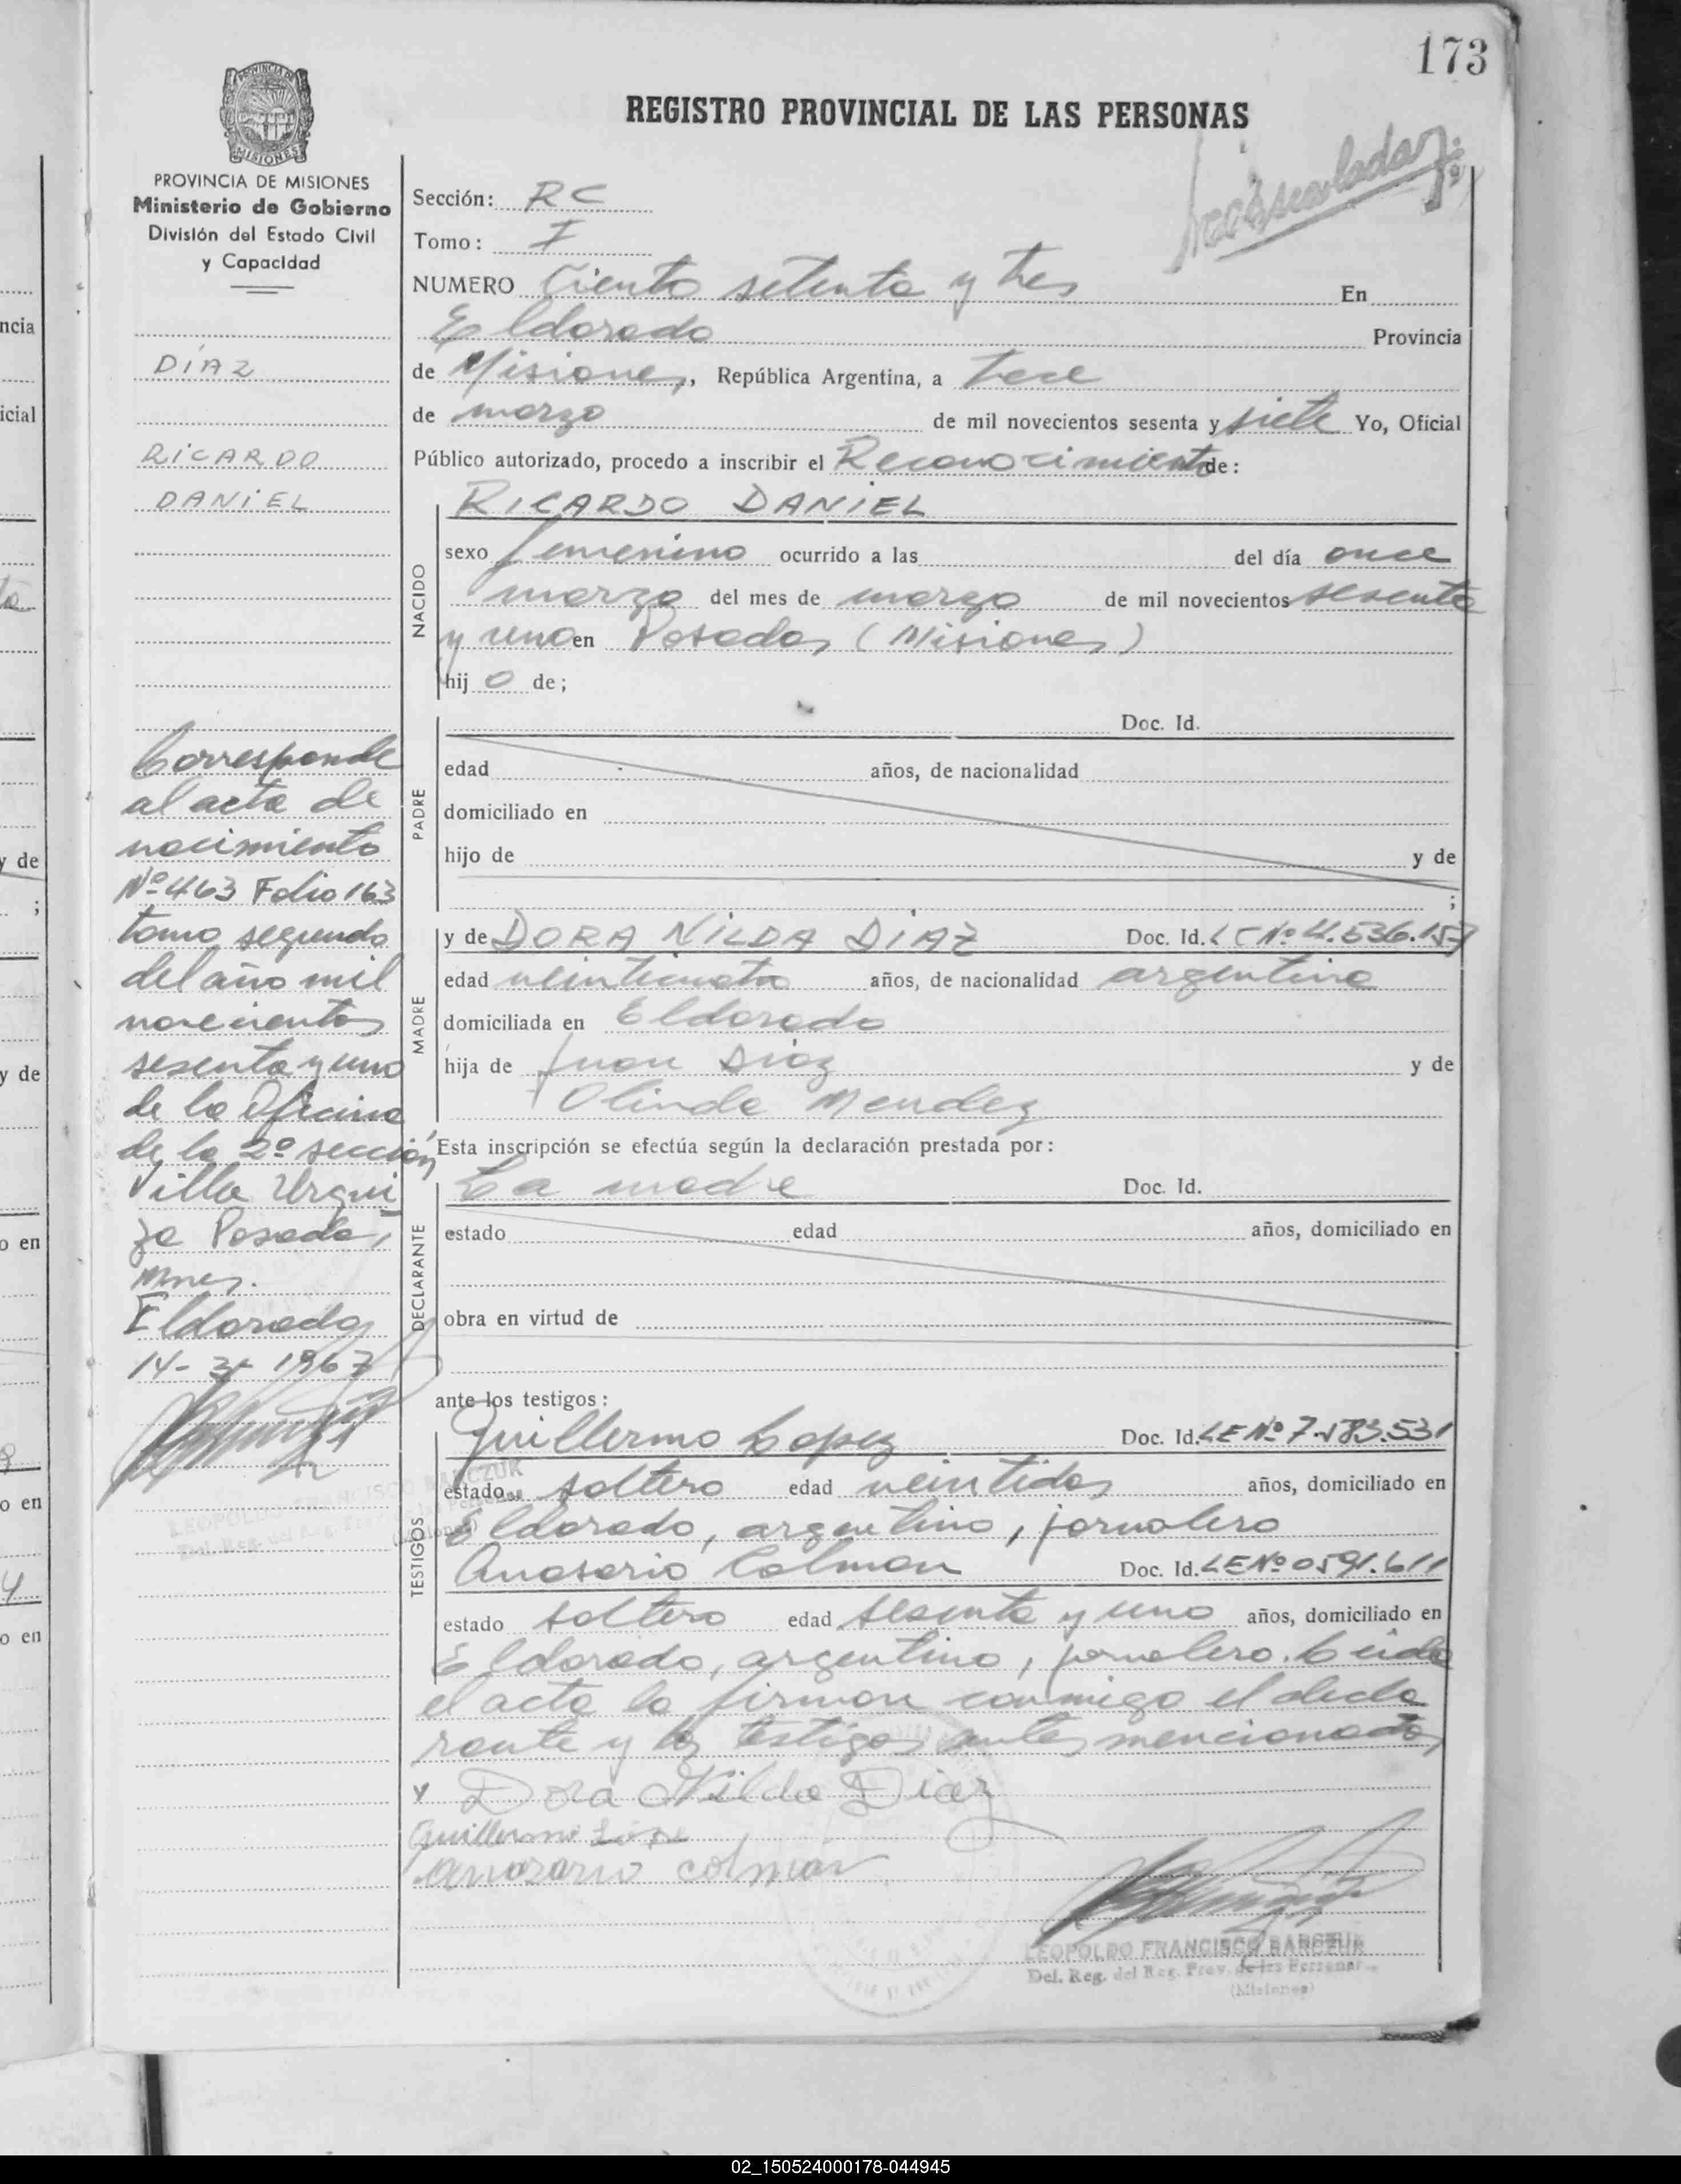 173
REGISTRO PROVINCIAL DE LAS PERSONAS
PROVINCIA DE MISIONES
Ministerio de Gobierno
División del Estado Civil
y Capacidad
DÍAZ
RICARDO
DANIEL
Corresponde
al acta de
nacimiento
Nº 463 Folio 163
tomo segundo
del año mil
novecientos
sesenta y uno
de la Oficina
de la 2º sección
Villa Urqui
za Posadas,
Mnes.
Eldorado,
14-3-1967
LEOPOLDO FRANCISCO BARCZUK
Sección: RC
Tomo: I
NUMERO Ciento setenta y tres En
Eldorado Provincia
de Misiones, República Argentina, a trece
de marzo de mil novecientos sesenta y siete Yo, Oficial
Público autorizado, procedo a inscribir el Reconocimiento de:
NACIDO
RICARDO DANIEL
sexo femenino ocurrido a las del día once
marzo del mes de marzo de mil novecientos sesenta
y uno en Posadas (Misiones)
hij o de;
PADRE
Doc. Id.
edad años, de nacionalidad
domiciliado en
hijo de y de
;
MADRE
y de DORA NILDA DIAZ Doc. Id. LC Nº 4.536.157
edad veinticuatro años, de nacionalidad argentina
domiciliada en Eldorado
hija de Juan Diaz y de
Olinda Mendez
Esta inscripción se efectúa según la declaración prestada por:
DECLARANTE
La madre Doc. Id.
estado edad años, domiciliado en
obra en virtud de
ante los testigos:
TESTIGOS
Guillermo Lopez Doc. Id. LE Nº 7.183.531
estado soltero edad veintidos años, domiciliado en
Eldorado, argentino, jornalero
Anasario Colman Doc. Id. LE Nº 0591.611
estado soltero edad sesenta y uno años, domiciliado en
Eldorado, argentino, jornalero. Leida
el acta la firman conmigo el decla
rante y los testigos antes mencionados
y Dora Nilda Diaz
Guillermo López
anasario colman
LEOPOLDO FRANCISCO BARCZUK
Del. Reg. del Reg. Prov. de las Personas
(Misiones)
02_150524000178-044945